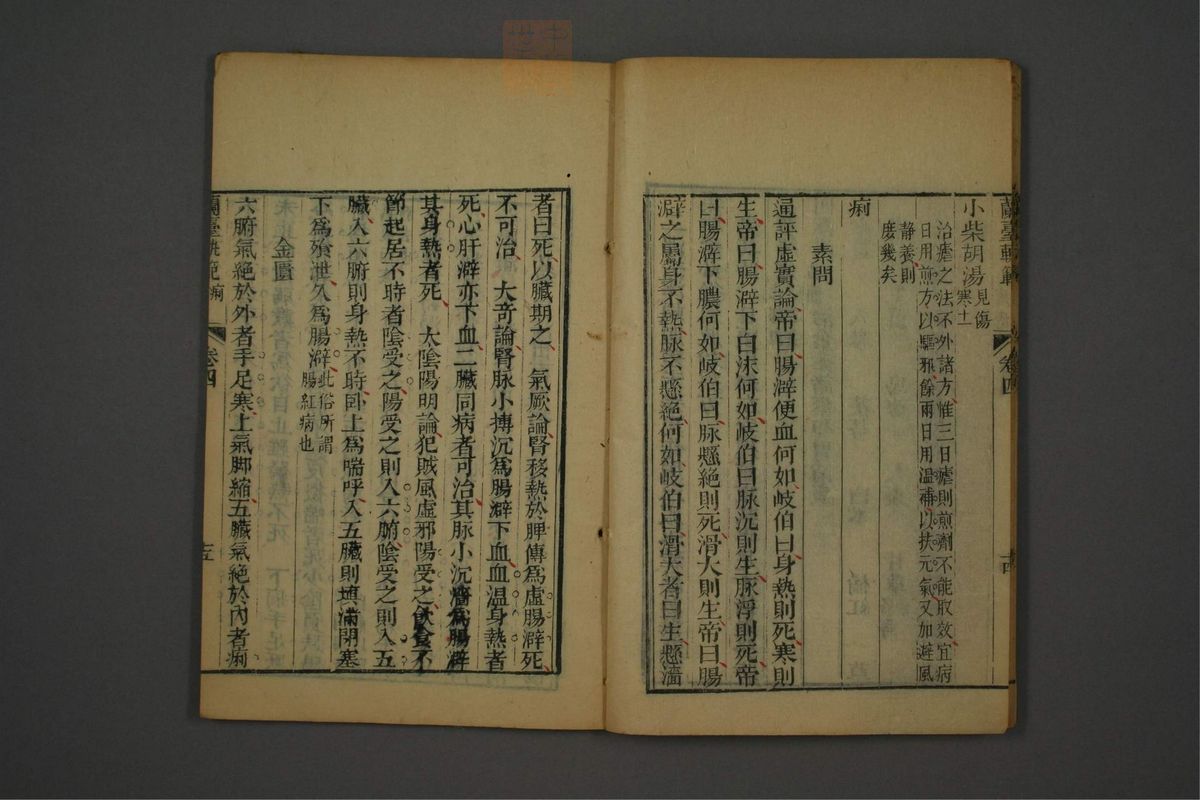 蘭臺軌範
卷四
小柴胡湯見傷寒十一
治瘧之法不外諸方惟三日瘧則煎劑不能取效宜病
日用煎方以驅邪餘兩日用溫補以扶元氣又加避風
靜養則
庶幾矣
痢
素問
通評虛實論帝曰腸澼便血何如岐伯曰身熱則死寒則
生帝曰腸澼下白沫何如岐伯曰脉沉則生脉浮則死帝
曰腸澼下膿何如岐伯曰脉懸絕則死滑大則生帝曰腸
澼之屬身不熱脉不懸絕何如岐伯曰滑大者曰生懸濇
者曰死以臟期之 氣厥論腎移熱於脾傳為虛腸澼死
不可治 大奇論腎脉小搏沉為腸澼下血血溫身熱者
死心肝澼亦下血二臟同病者可治其脉小沉濇為腸澼
其身熱者死 太陰陽明論犯賊風虛邪陽受之飲食不
節起居不時者陰受之陽受之則入六腑陰受之則入五
臟入六腑則身熱不時臥上為喘呼入五臟則䐜滿閉塞
下為飧泄久為腸澼此俗所謂腸紅病也
金匱
六腑氣絕於外者手足寒上氣脚縮五臟氣絕於內者痢
蘭臺軌範 痢
卷四